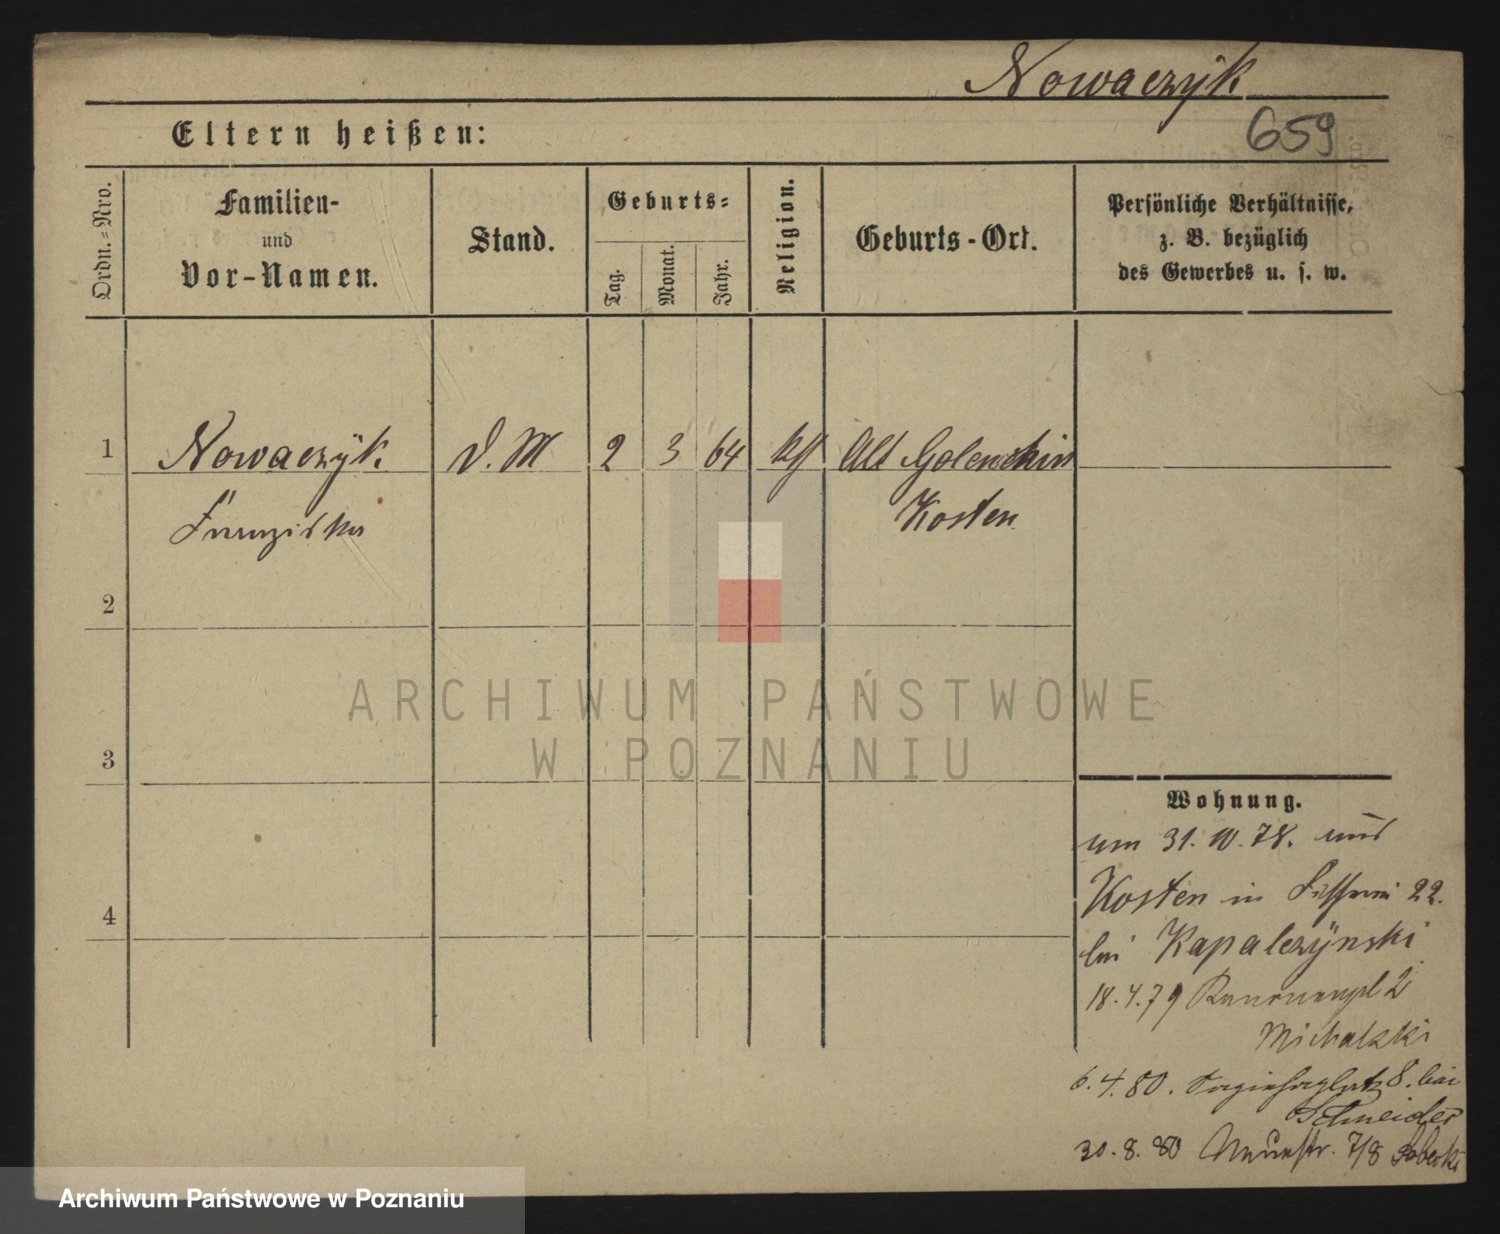 Nowaczyk
659
Eltern heißen:
Ordn.=Nro.
Familien-
und
Vor-Namen.
Stand.
Geburts-
Tag.
Monat.
Jahr.
Religion.
Geburts-Ort.
Persönliche Verhältnisse,
z. B. bezüglich
des Gewerbes u. s. w.
1 Nowaczÿk D. M 2 3 64 Alt
Franziska Kosten
2
3
4
ARCHIWUM PAŃSTWOWE
W POZNANIU
Wohnung.
31. 10. 78. aus
Kosten in Fischerei 22.
bei Kapalczÿnski
18. 4. 79 Kanonenpl 2
Michalski
6. 4. 80. 8. bei
Schneider
30. 8. 80 7/8
Archiwum Państwowe w Poznaniu